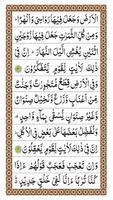 الْاَرْضَ وَجَعَلَ فِيْهَا رَوَاسِيَ وَاَنْهٰرًا ؕ
وَمِنْ كُلِّ الثَّمَرٰتِ جَعَلَ فِيْهَا زَوْجَيْنِ
اثْنَيْنِ يُغْشِي الَّيْلَ النَّهَارَ ؕ اِنَّ فِيْ
ذٰلِكَ لَاٰيٰتٍ لِّقَوْمٍ يَّتَفَكَّرُوْنَ
وَفِي الْاَرْضِ قِطَعٌ مُّتَجٰوِرٰتٌ وَّجَنّٰتٌ
مِّنْ اَعْنَابٍ وَّزَرْعٌ وَّنَخِيْلٌ صِنْوَانٌ
وَّغَيْرُ صِنْوَانٍ يُّسْقٰى بِمَآءٍ وَّاحِدٍ ۫
وَنُفَضِّلُ بَعْضَهَا عَلٰى بَعْضٍ فِي الْاُكُلِ ؕ
اِنَّ فِيْ ذٰلِكَ لَاٰيٰتٍ لِّقَوْمٍ يَّعْقِلُوْنَ
وَاِنْ تَعْجَبْ فَعَجَبٌ قَوْلُهُمْ ءَاِذَا
كُنَّا تُرٰبًا ءَاِنَّا لَفِيْ خَلْقٍ جَدِيْدٍ ؕ